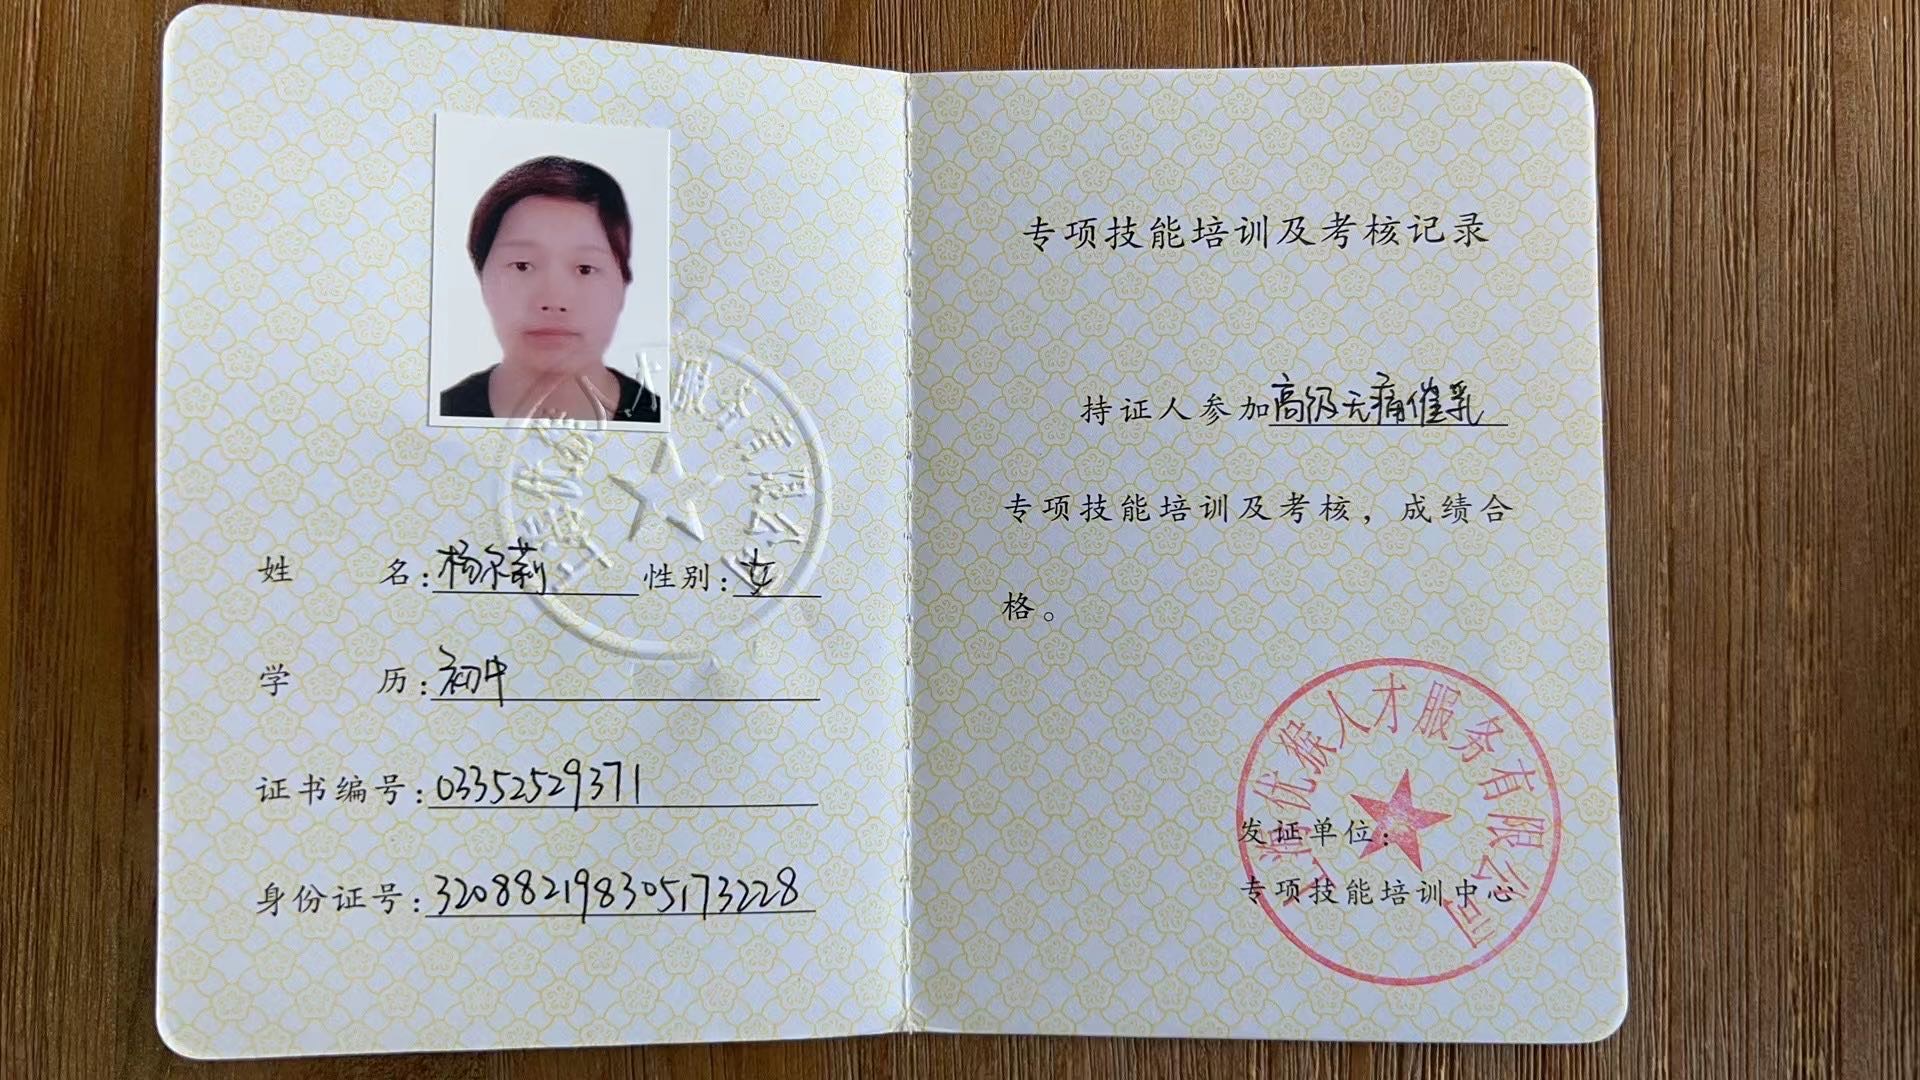 姓名：杨尔莉 性别：女
学历：初中
证书编号：03352529371
身份证号：320882198305173228
专项技能培训及考核记录
持证人参加高级无痛催乳
专项技能培训及考核，成绩合
格。
发证单位：
专项技能培训中心
上海优猴人才服务有限公司